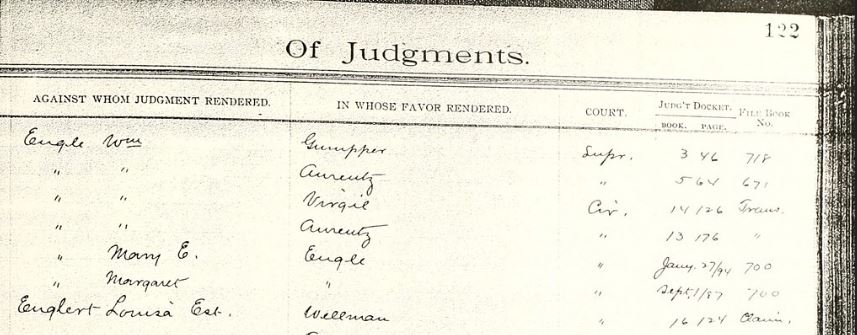 122
Of Judgments.
AGAINST WHOM JUDGMENT RENDERED. IN WHOSE FAVOR RENDERED. COURT. JUDG'T DOCKET. FILE BOOK
BOOK. PAGE. No.
Engle Wm Gumpper Supr. 3 46 718
" " Aurentz " 5 64 671
" " Virgil Cir. 14 126 Trans.
" " Aurentz " 13 176 "
" Mary E. Engle " Jany. 27/94 700
" Margaret " " Sept. 1/87 700
Englert Louisa Est. Wellman " 16 124 Claim.